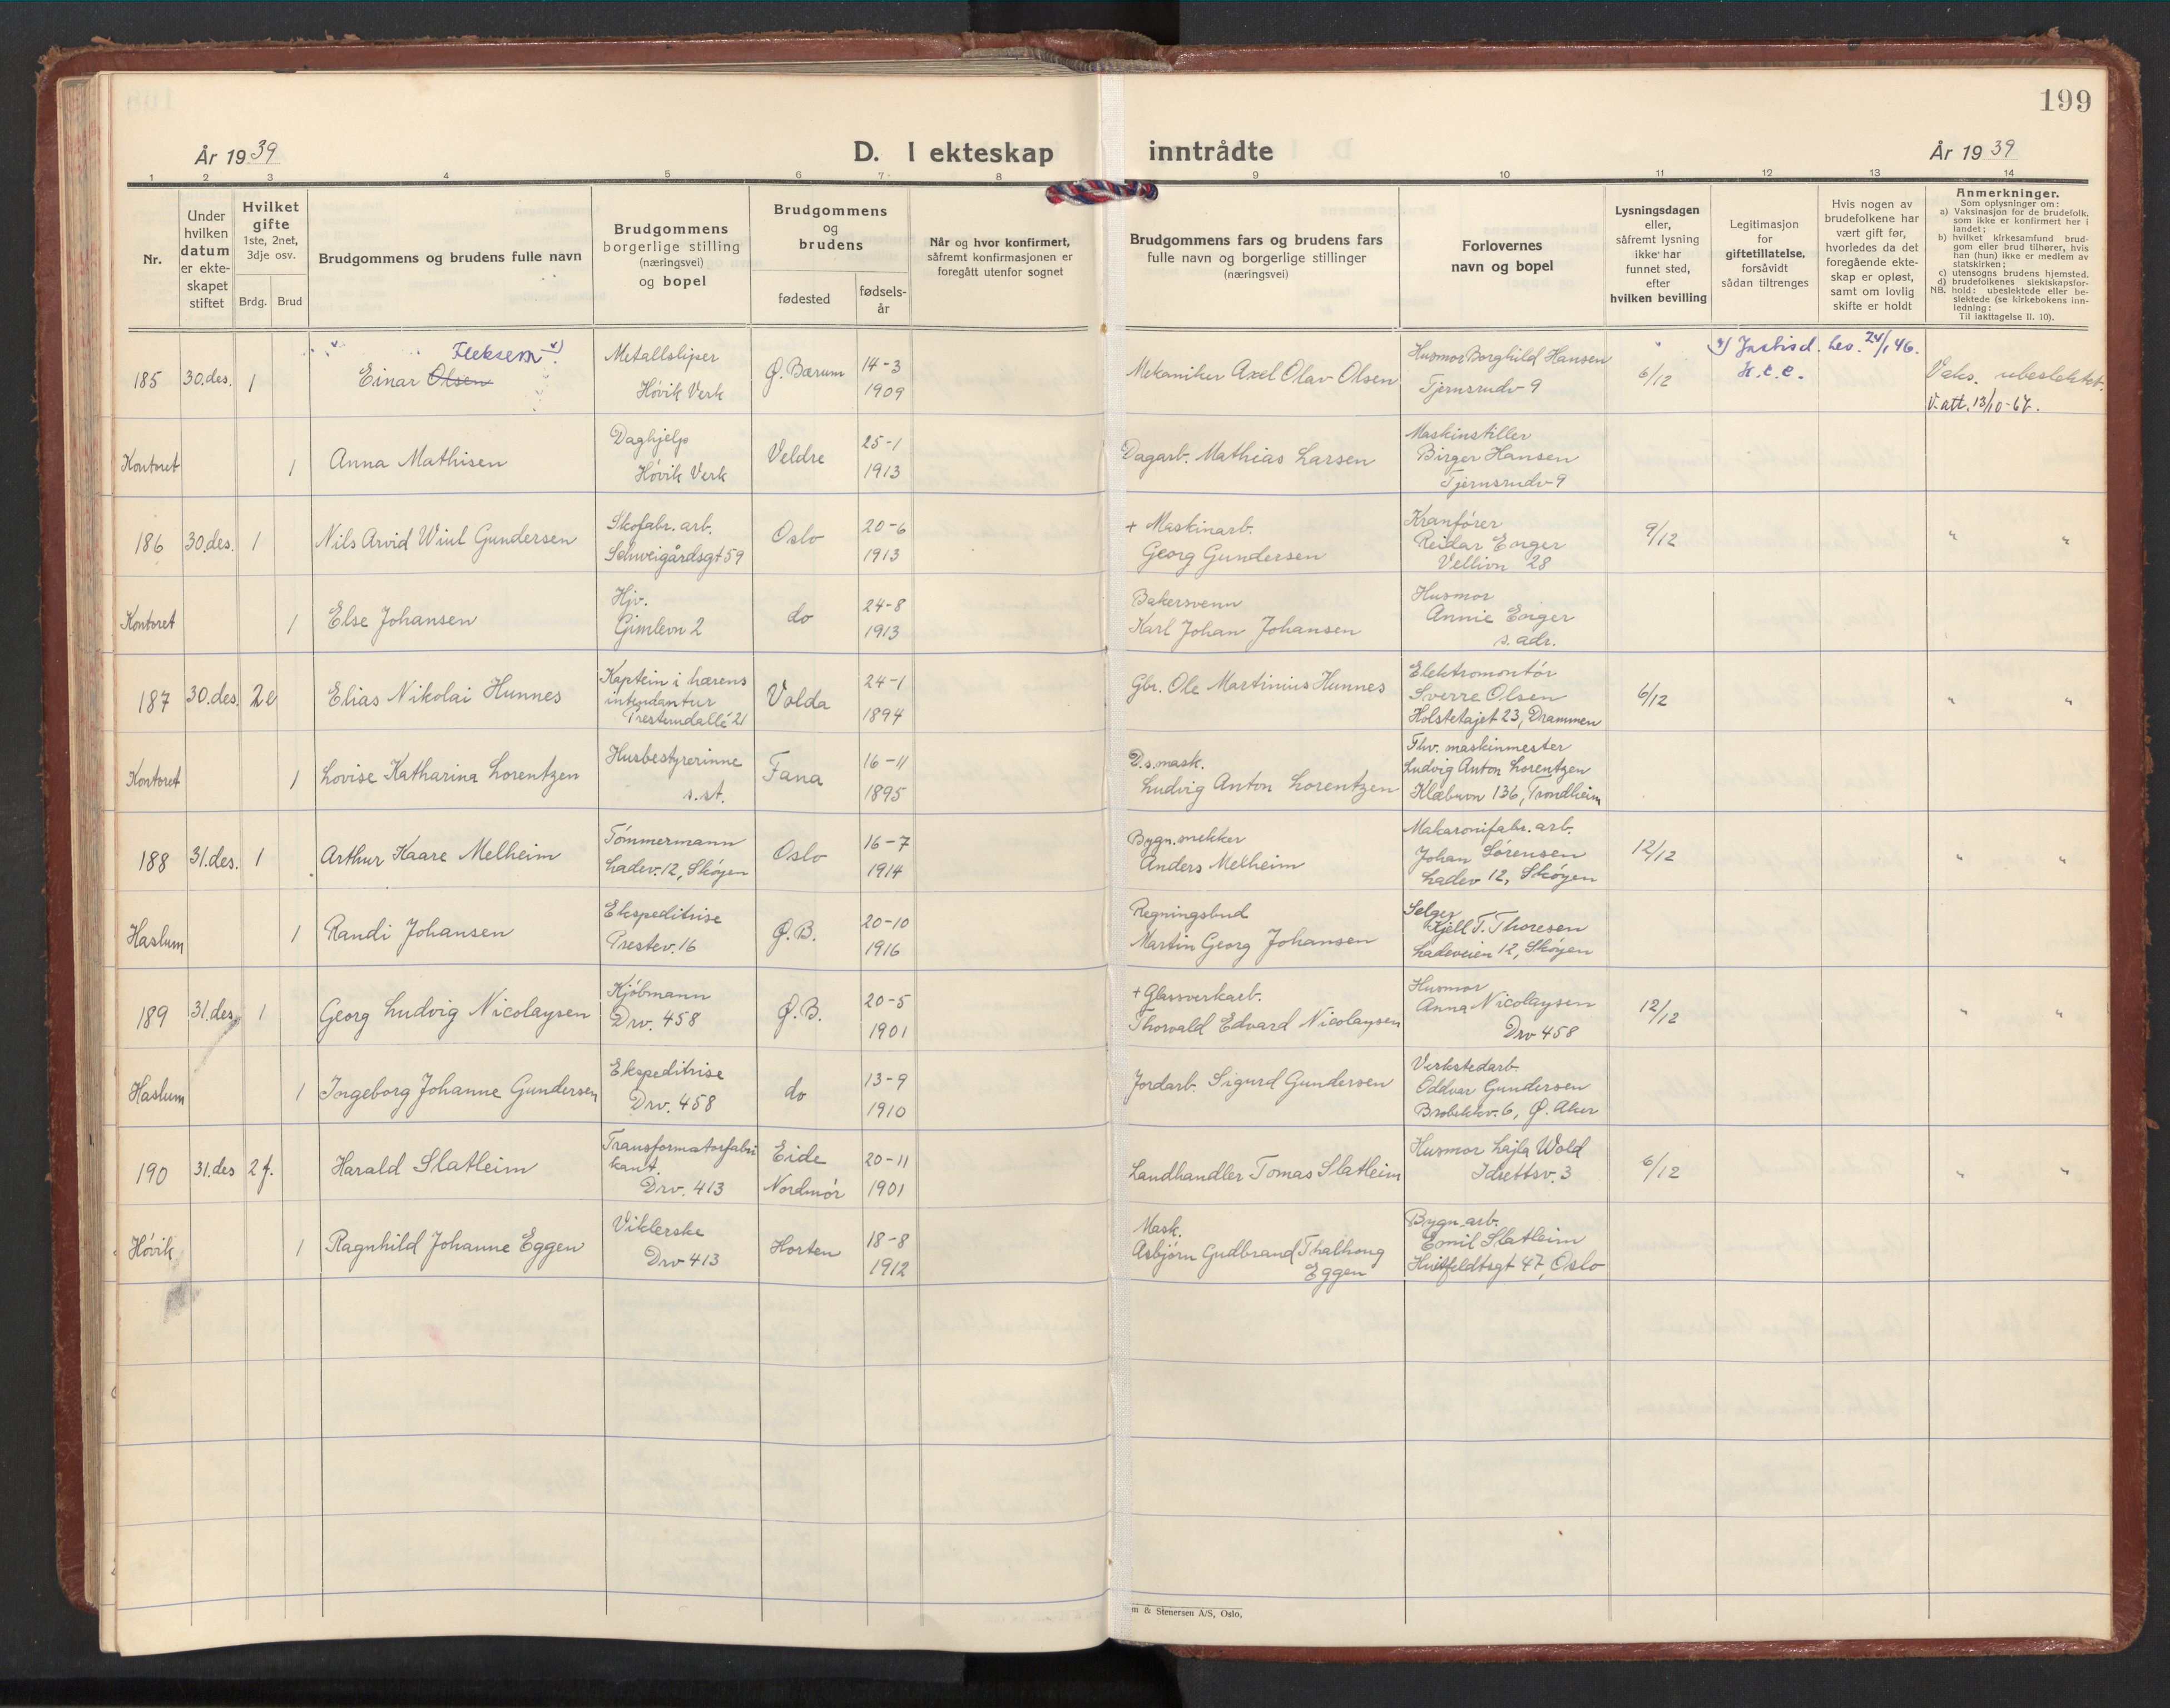 199
År 1939
D. I ekteskap inntrådte
År 1939
1 2 3 4 5 6 7 8 9 10 11 12 13 14
Nr.
Under hvilken datum er ekte-skapet stiftet
Hvilket gifte
1ste, 2net, 3dje osv.
Brdg. Brud
Brudgommens og brudens fulle navn
Brudgommens borgerlige stilling (næringsvei) og bopel
Brudgommens og brudens
fødested
fødsels-år
Når og hvor konfirmert, såfremt konfirmasjonen er foregått utenfor sognet
Brudgommens fars og brudens fars fulle navn og borgerlige stillinger (næringsvei)
Forlovernes navn og bopel
Lysningsdagen eller, såfremt lysning ikke har funnet sted, efter hvilken bevilling
Legitimasjon for giftetillatelse, forsåvidt sådan tiltrenges
Hvis nogen av brudefolkene har vært gift før, hvorledes da det foregående ekte-skap er opløst, samt om lovlig skifte er holdt
Anmerkninger.
Som oplysninger om:
a) Vaksinasjon for de brudefolk, som ikke er konfirmert her i landet;
b) hvilket kirkesamfund brud-gom eller brud tilhører, hvis han (hun) ikke er medlem av statskirken;
c) utensogns brudens hjemsted.
d) brudefolkenes slektskapsfor-hold: ubeslektede eller be-slektede (se kirkebokens inn-ledning:
NB.
Til iakttagelse II. 10).
185 30.des. 1 Einar Olsen
Metallsliper
Høvik Verk
Ø. Bærum
14-3
1909
Mekaniker Axel Olav Olsen
Husmor Borghild Hansen
Tjernsrudv 9
6/12
x) Justisd. bev. 24/1 46.
Vaks. ubeslektet.
V. att. 13/10-67.
Kontoret 1 Anna Mathisen
Daghjelp
Høvik Verk
Veldre
25-1
1913
Dagarb. Mathias Larsen
Maskinstiller
Birger Hansen
Tjernsrudv 9
186 30.des. 1 Nils Arvid Wiul Gundersen
Skofabr. arb.
Schweigårdsgt 59
Oslo
20-6
1913
+ Maskinarb.
Georg Gundersen
Kranfører
Reidar Enger
28
9/12
" "
Kontoret 1 Else Johansen
Hjv.
Gimlevn 2
do
24-8
1913
Bakersvenn
Karl Johan Johansen
Husmor
Annie Enger
s. adr.
187 30.des. 2 e Elias Nikolai Hunnes
Kaptein i hærens
intendantur
21
Volda
24-1
1894
Gbr. Ole Martinius Hunnes
Elektromontør
Sverre Olsen
23, Drammen
6/12
" "
Kontoret 1 Lovise Katharina Lorentzen
Husbestyrerinne
s.st.
Fana
16-11
1895
D.s.mask.
Ludvig Anton Lorentzen
Fhv. maskinmester
Ludvig Anton Lorentzen
Klæbuvn 136, Trondheim
188 31.des. 1 Arthur Kaare Melheim
Tømmermann
Ladev. 12, Skøyen
Oslo
16-7
1914
Bygn.snekker
Anders Melheim
Makaronifabr. arb.
Johan Sørensen
Ladev 12, Skøyen
12/12
" "
Haslum 1 Randi Johansen
Ekspeditrise
Prestev. 16
Ø.B.
20-10
1916
Regningsbud
Martin Georg Johansen
Selger
Kjell T. Thoresen
Ladeveien 12, Skøyen
189 31.des. 1 Georg Ludvig Nicolaysen
Kjøbmann
Drv. 458
Ø.B.
20-5
1901
+ Glassverkarb.
Thorvald Edvard Nicolaysen
Husmor
Anna Nicolaysen
Drv 458
12/12
" "
Haslum 1 Ingeborg Johanne Gundersen
Ekspeditrise
Drv. 458
do
13-9
1910
Jordarb. Sigurd Gundersen
Verkstedarb.
Oddvar Gundersen
Brobekkv. 6, Ø. Aker
190 31.des 2 f. Harald Slatleim
Transformatorfabri
kant.
Drv. 413
Eide
Nordmør
20-11
1901
Landhandler Tomas Slatleim
Husmor Lajla Wold
Idrettsv. 3
6/12
" "
Høvik 1 Ragnhild Johanne Eggen
Viklerske
Drv 413
Horten
18-8
1912
Mask.
Asbjørn Gudbrand Thalhaug
Eggen
Bygn. arb.
Emil Slatleim
Huitfeldtsgt 47, Oslo
m & Stenersen A/S, Oslo.